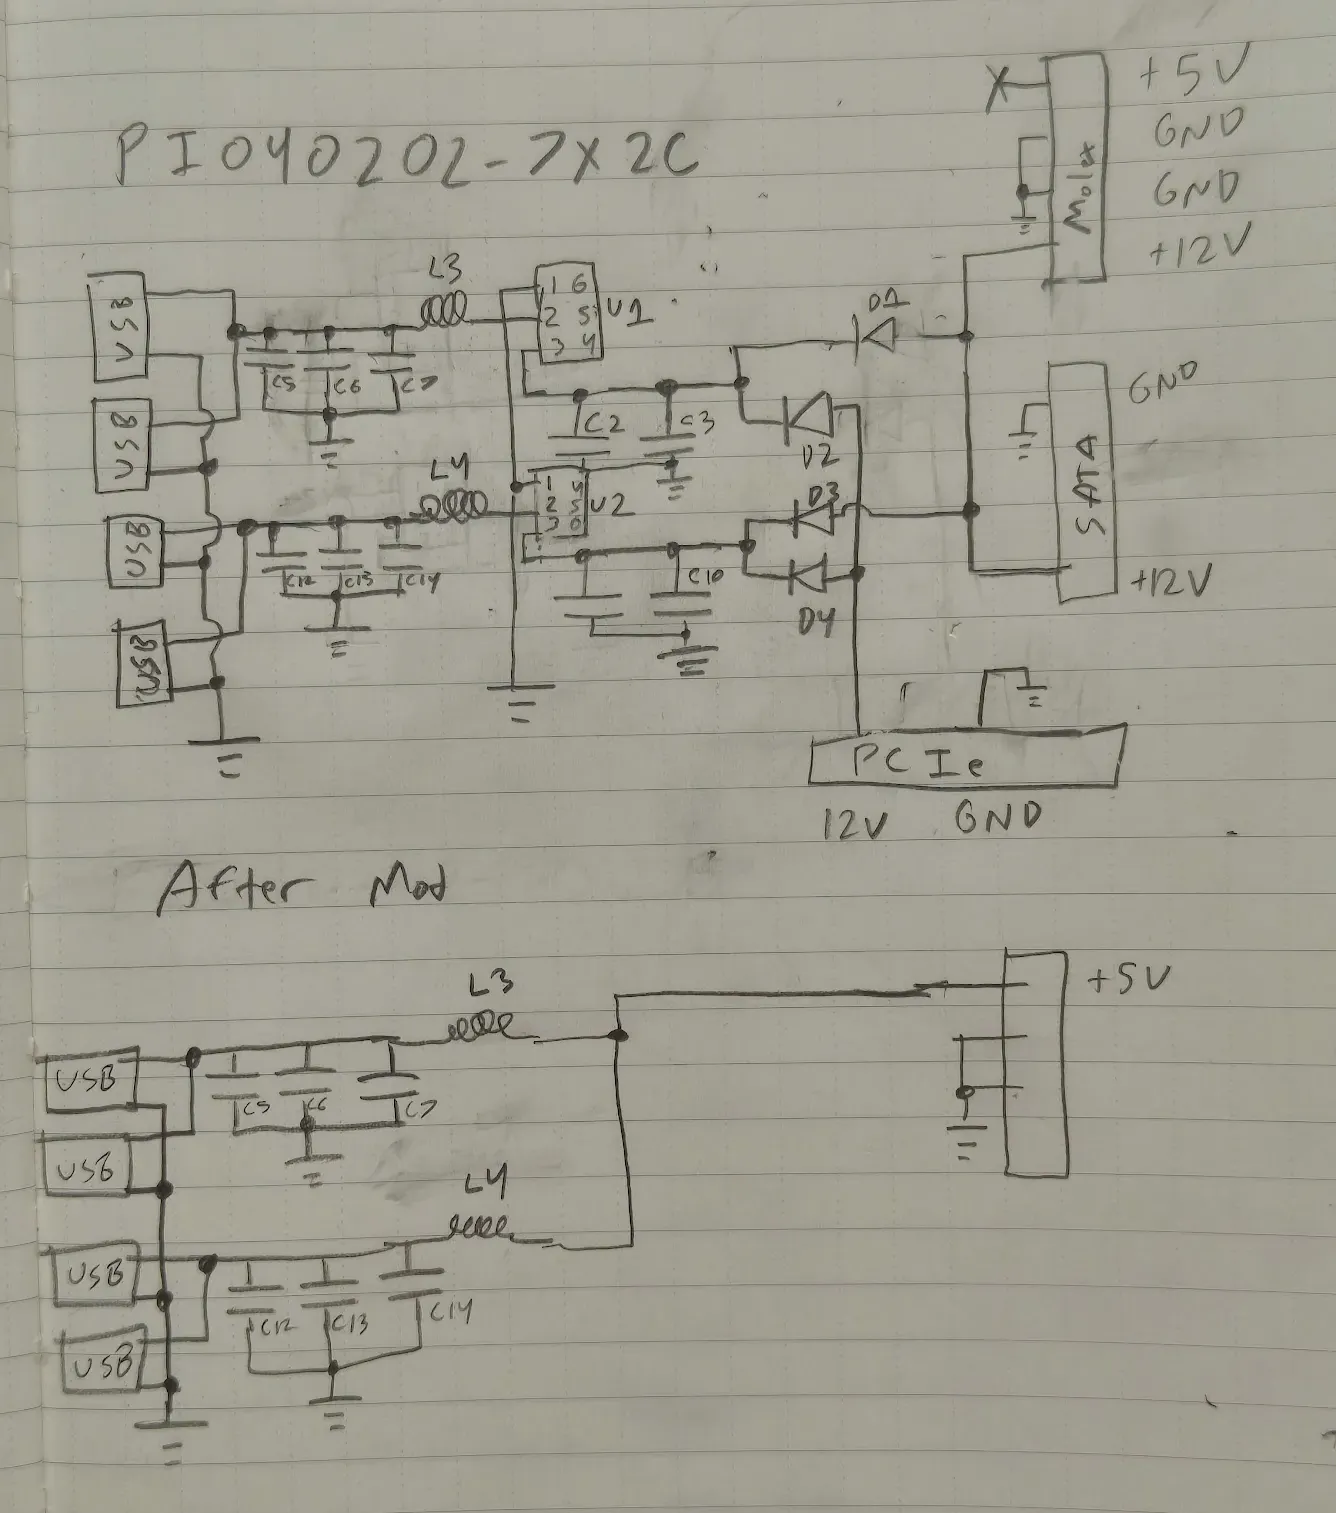 +5V
GND
PI040202-7X2C
Molex
GND
+12V
L3
USB
1 6
2 5
3 4
U1
D1
C5
C6
C7
GND
USB
C2
C3
D2
SATA
L4
1 4
2 5
3 6
U2
D3
USB
C12
C13
C14
C10
+12V
D4
USB
PCIe
12V
GND
After Mod
L3
+5V
USB
C5
C6
C7
USB
L4
USB
C12
C13
C14
USB